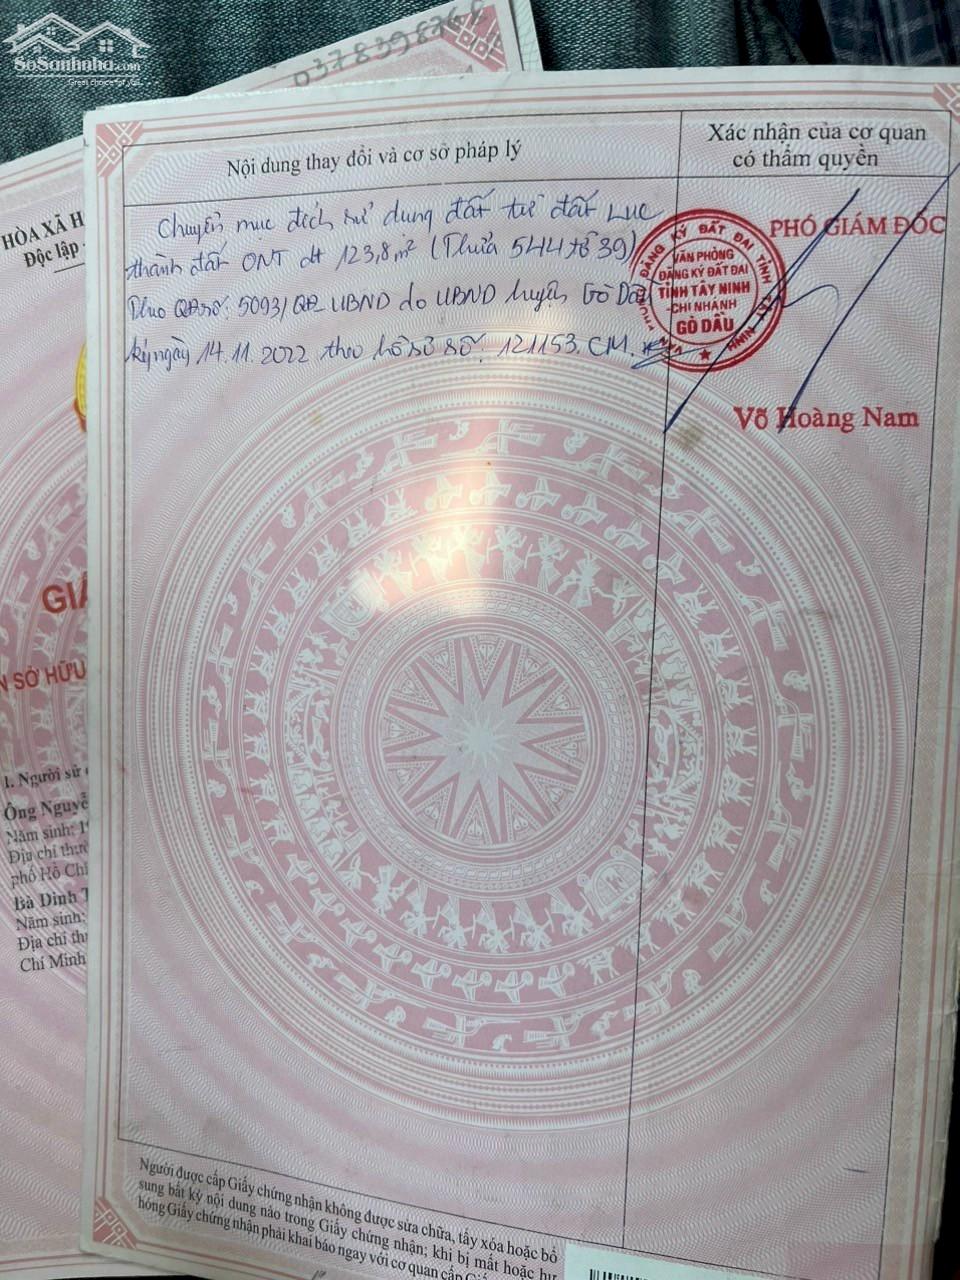 SoSanhnha.com
Great choice for you
0378398768
HÒA XÃ H
Độc lập -
GIẤ
N SỞ HỮU
I. Người sử
Ông Nguyễ
Năm sinh: 1
Địa chỉ thườ
phố Hồ Chí
Bà Đinh T
Năm sinh:
Địa chỉ thư
Chí Minh
Nội dung thay đổi và cơ sở pháp lý
Xác nhận của cơ quan
có thẩm quyền
Chuyển mục đích sử dụng đất từ đất LUC
thành đất ONT dt 123,8m² (Thửa 544 tờ 39)
Theo QĐ số: 5093/QĐ UBND do UBND huyện Gò Dầu
ký ngày 14.11.2022 theo hồ sơ số: 121153.CM.
PHÓ GIÁM ĐỐC
VĂN PHÒNG
ĐĂNG KÝ ĐẤT ĐAI
TỈNH TÂY NINH
-CHI NHÁNH
GÒ DẦU
Võ Hoàng Nam
Người được cấp Giấy chứng nhận không được sửa chữa, tẩy xóa hoặc bổ
sung bất kỳ nội dung nào trong Giấy chứng nhận; khi bị mất hoặc hư
hỏng Giấy chứng nhận phải khai báo ngay với cơ quan cấp